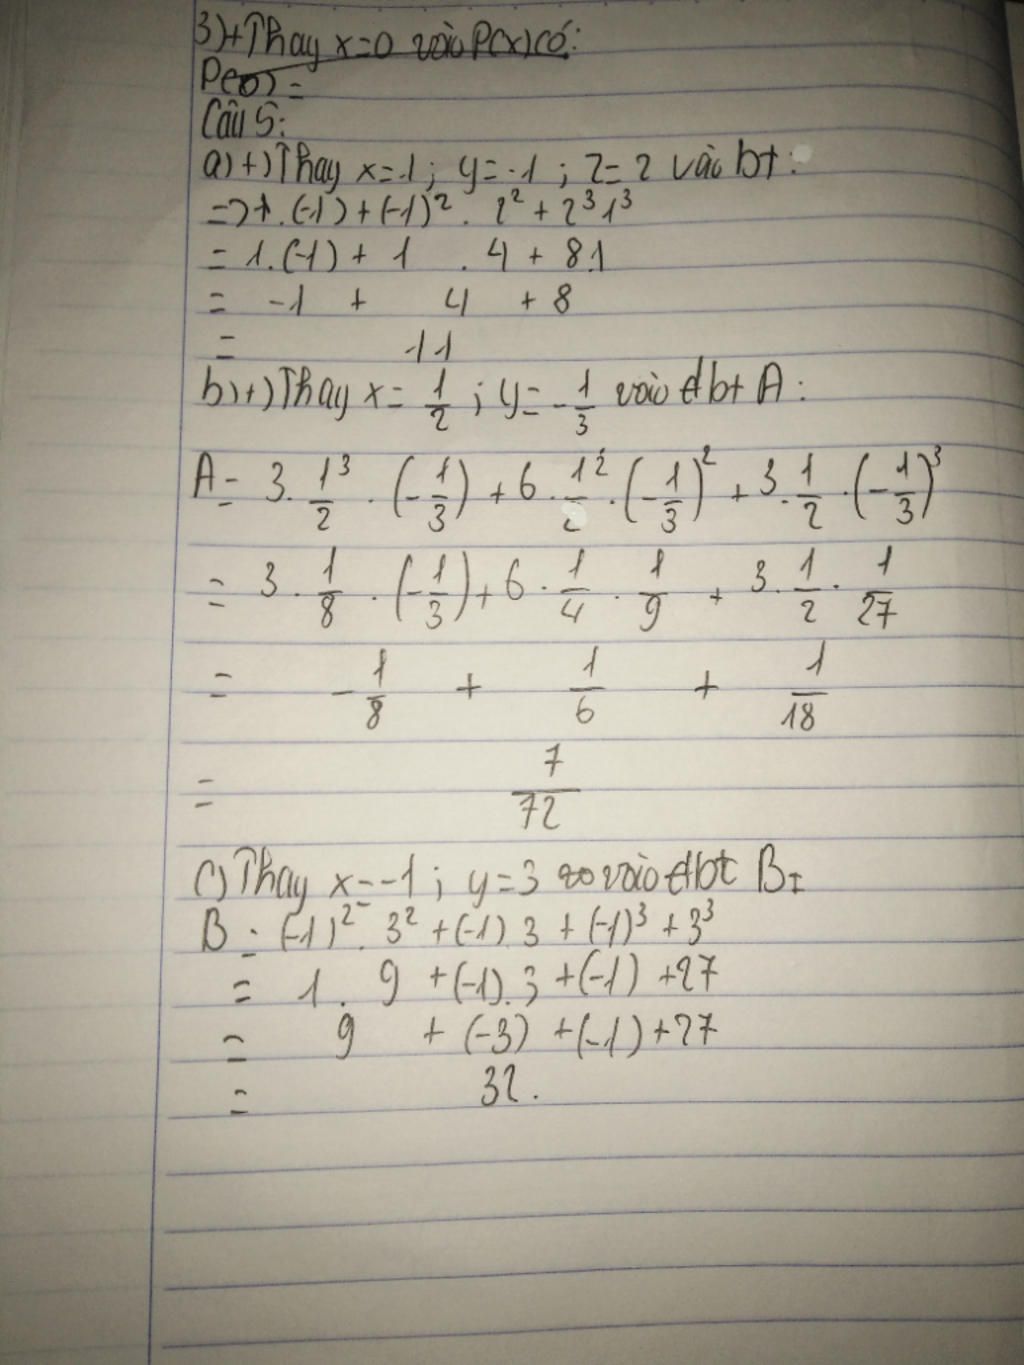 3)+Thay x=0 vào P(x) có:
P(0) =
Câu 5:
a)+) Thay x=1; y=-1; z=2 vào bt:
=> 1.(-1)+(-1)². 2² + 2³1³
= 1.(-1) + 1 . 4 + 8.1
= -1 + 4 + 8
= 11
b)+) Thay x= 1/2 ; y= -1/3 vào đbt A:
A= 3. 1/2³ . (-1/3) + 6. 1/2² . (-1/3)² + 3. 1/2 . (-1/3)³
= 3. 1/8 . (-1/3) + 6. 1/4 . 1/9 + 3. 1/2 . 1/27
= -1/8 + 1/6 + 1/18
= 7/72
c) Thay x=-1; y=3 vào đbt B:
B = (-1)². 3² + (-1).3 + (-1)³ + 3³
= 1. 9 + (-1).3 + (-1) + 27
= 9 + (-3) + (-1) + 27
= 32.